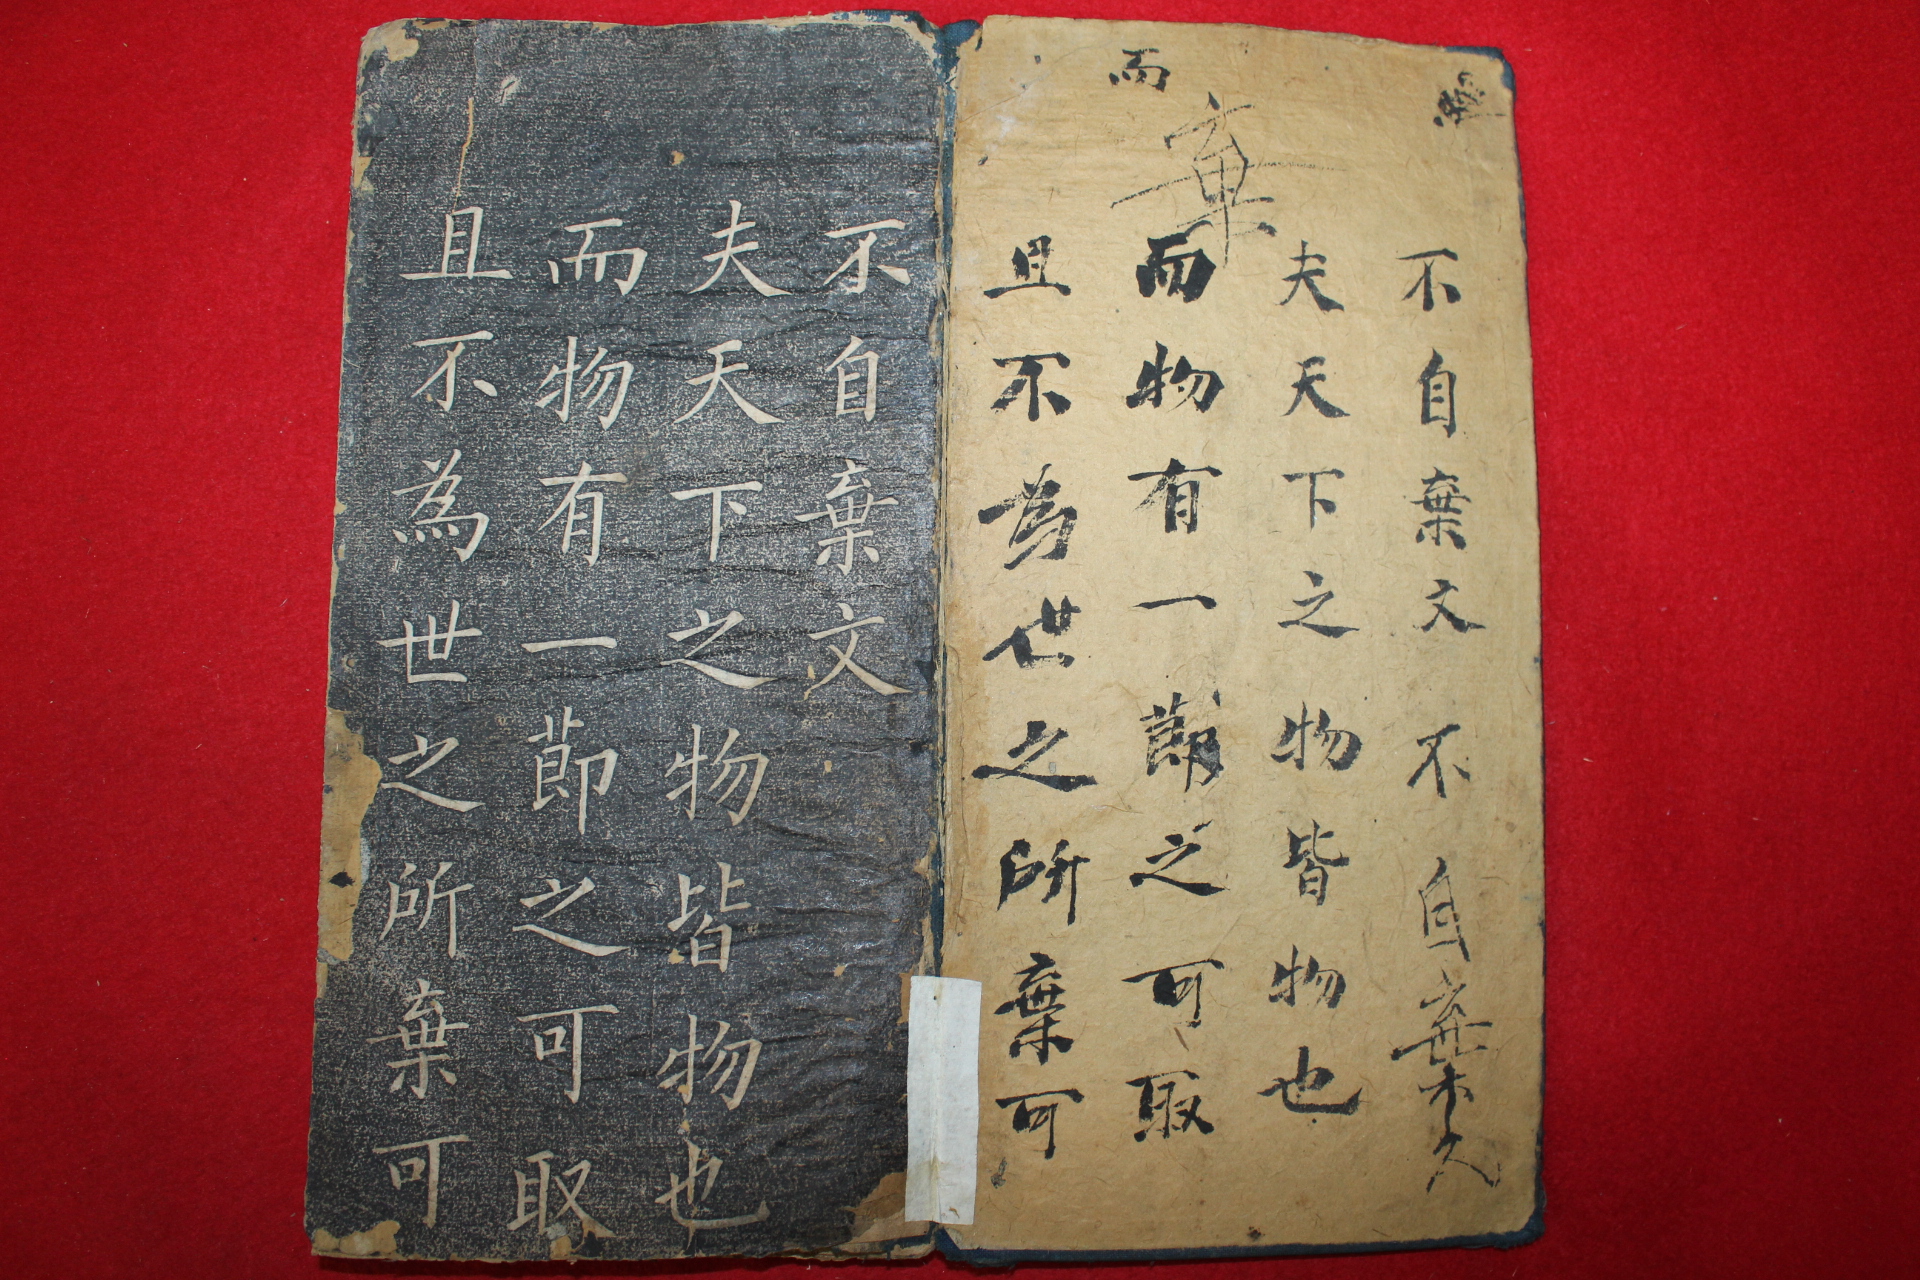 不自棄文不自棄文
夫天下之物皆物也
而
棄
而物有一莭之可取
且不為世之所棄可
不自棄文
夫天下之物皆物也
而物有一莭之可取
且不為世之所棄可